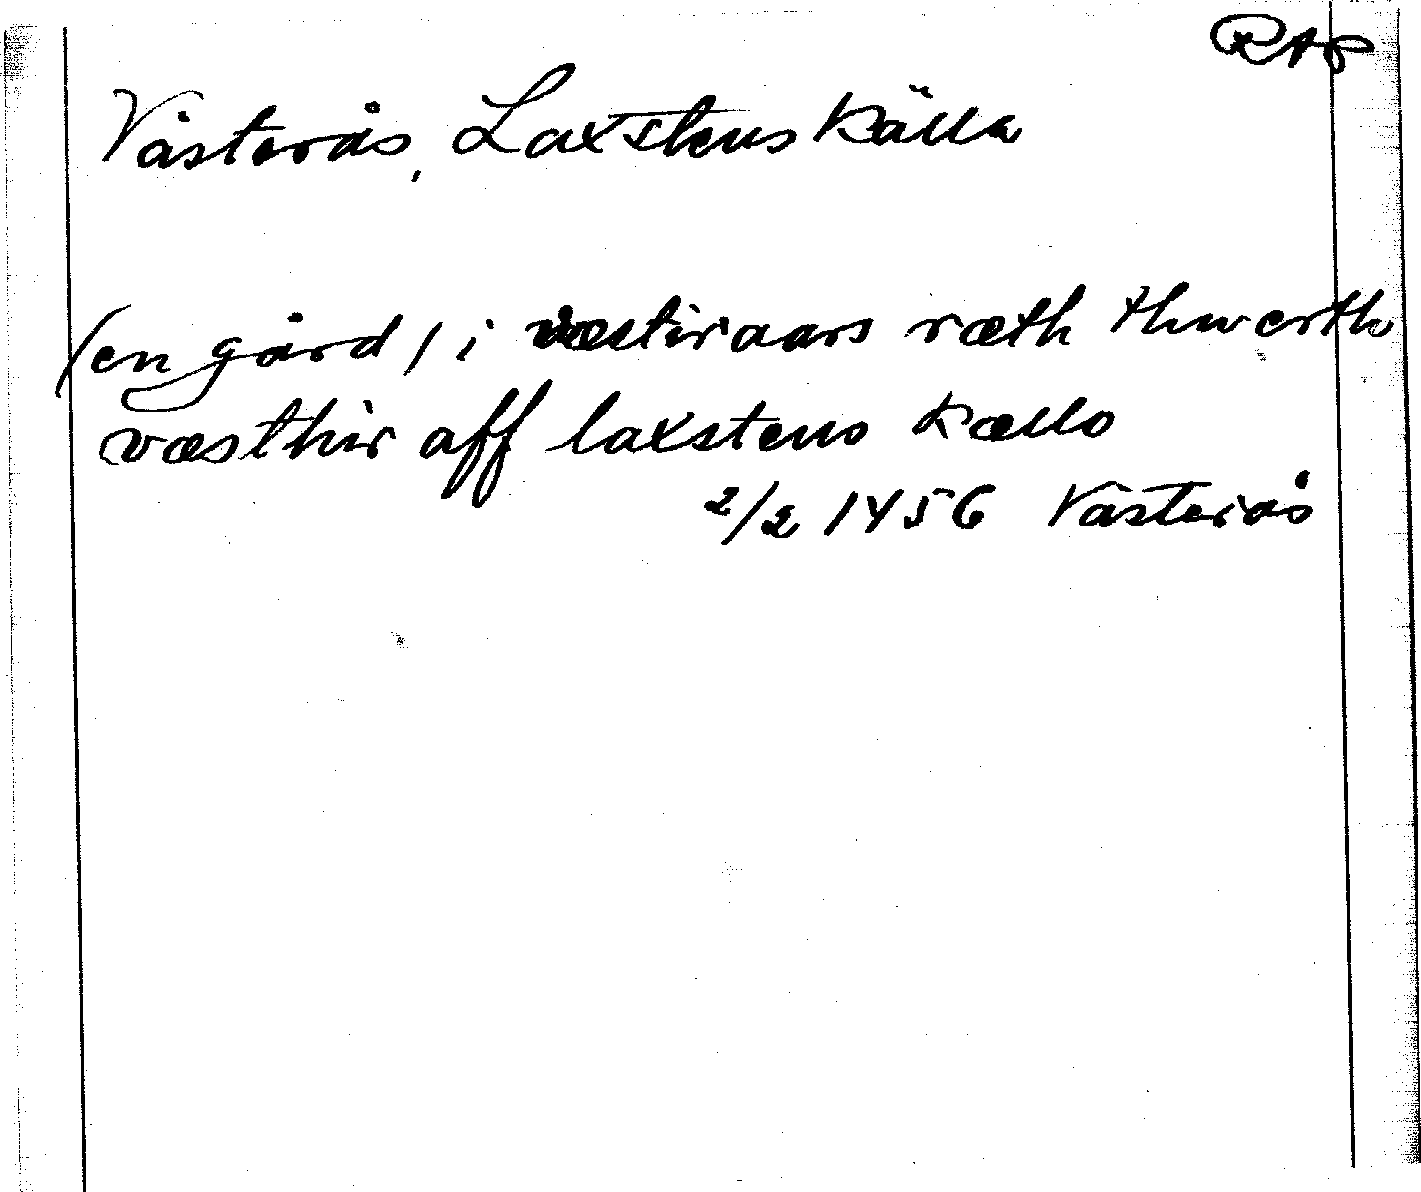 RAp
Västerås, Laxstens källa
(en gård) i væstiraars ræth thwerth
væsthir aff laxstens kællo
2/2 1456 Västerås